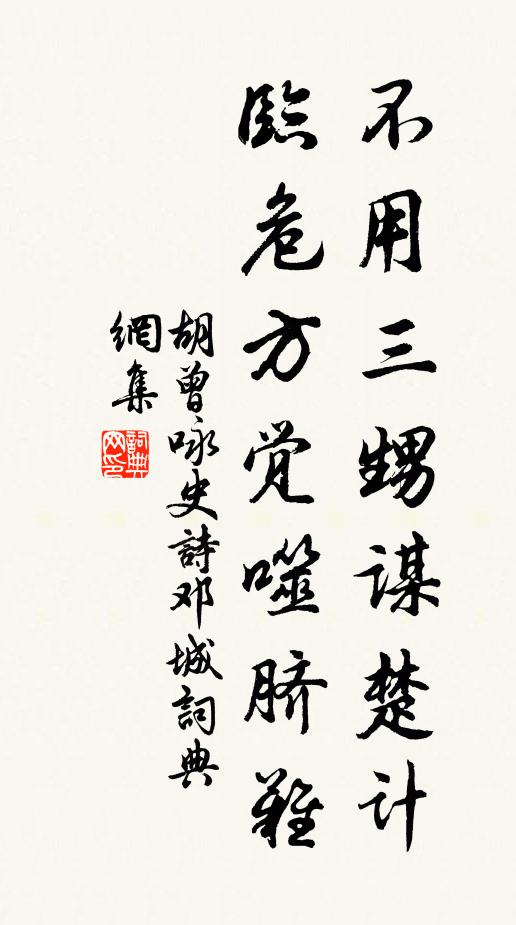 不用三甥谋楚计
临危方觉噬脐難
胡曾咏史詩邓城詞典
網集
詞典網印